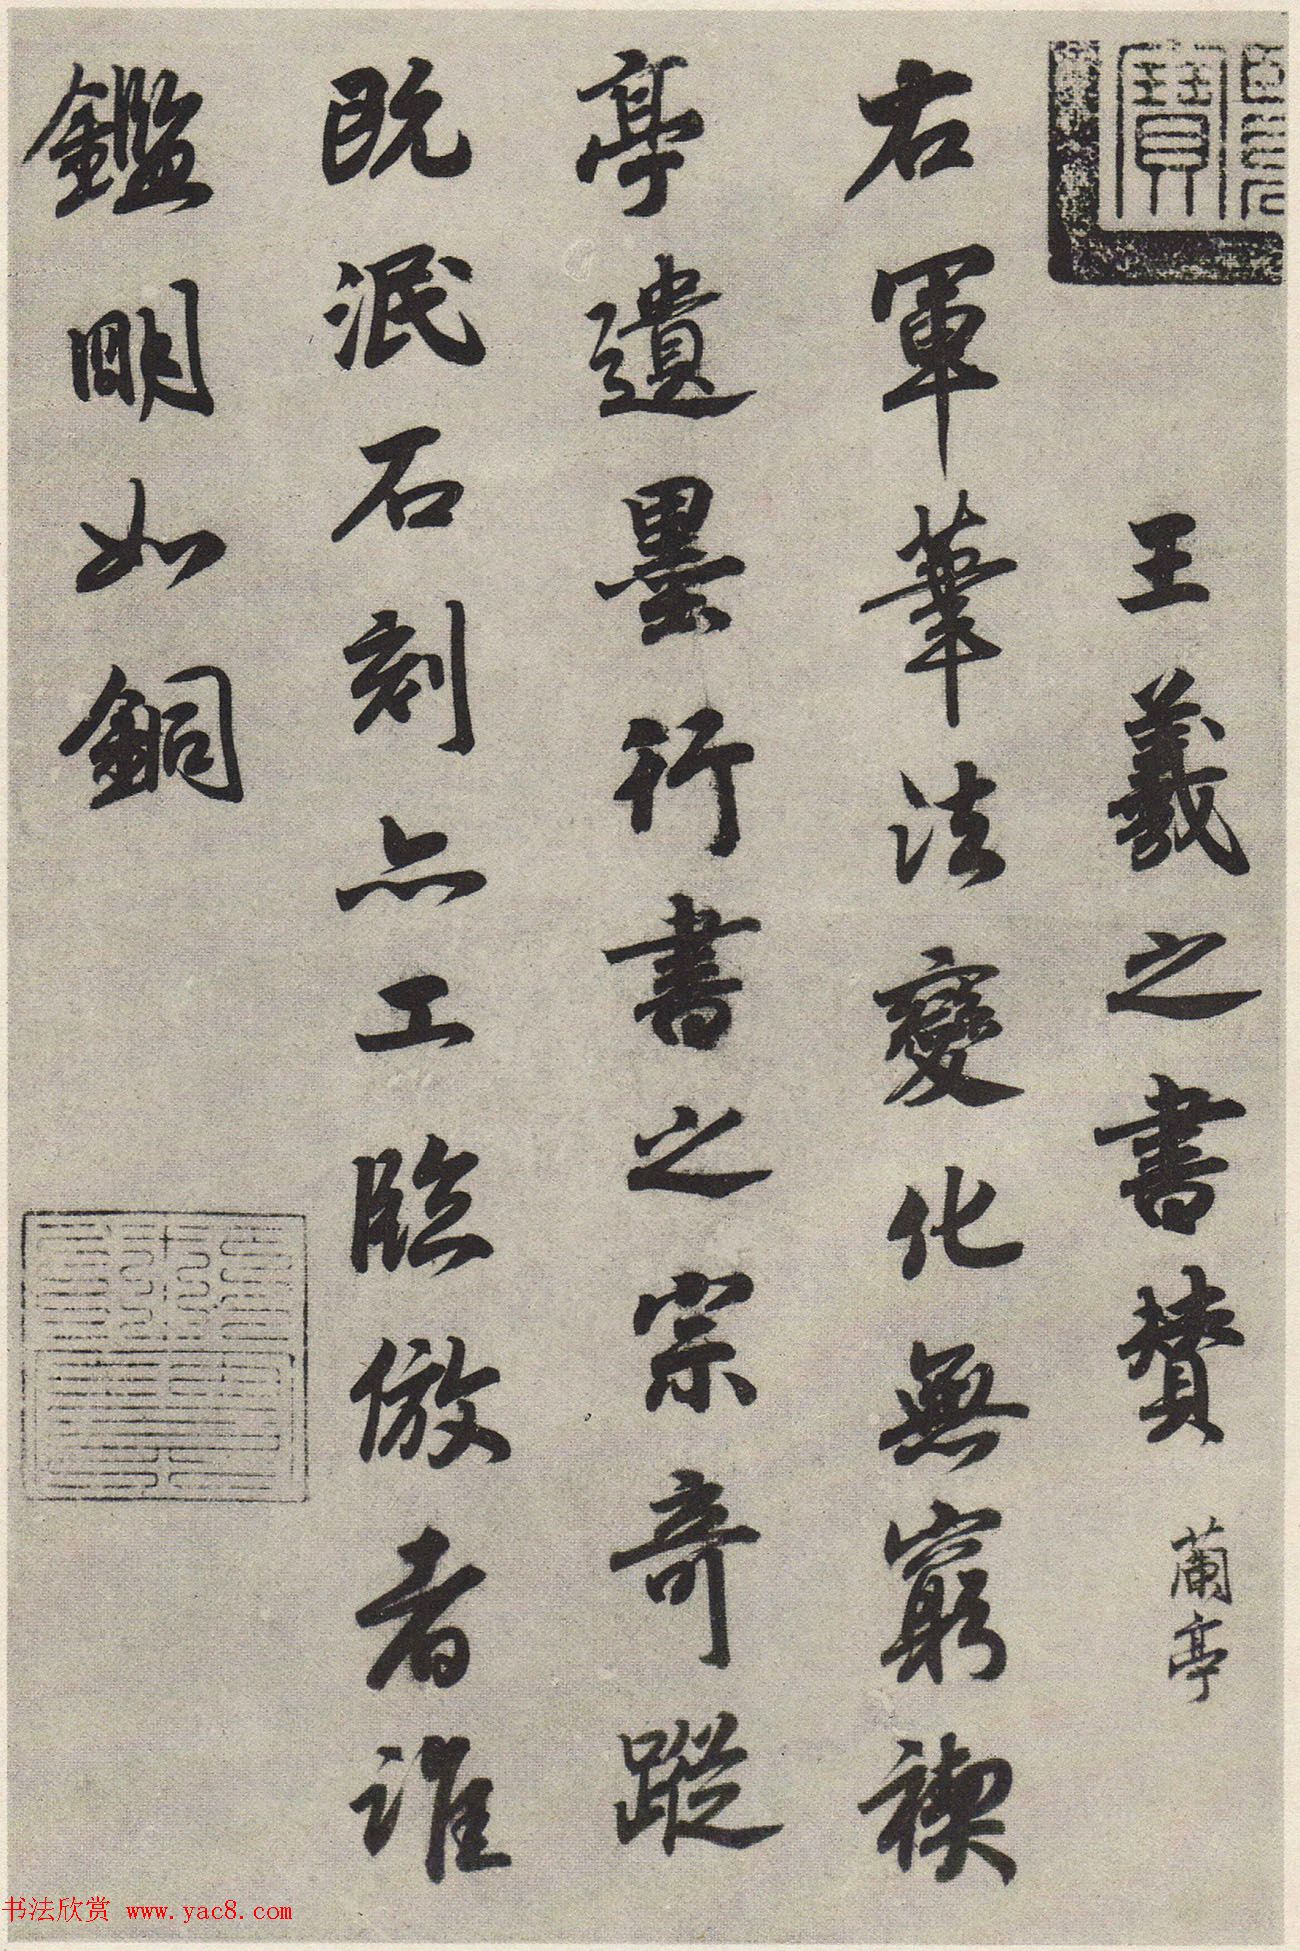 王羲之書賛 蘭亭
右軍筆法變化無窮禊
亭遺墨行書之宗奇蹤
既泯石刻亦工臨倣者誰
鑑明如銅
寶
书法欣赏 www.yac8.com